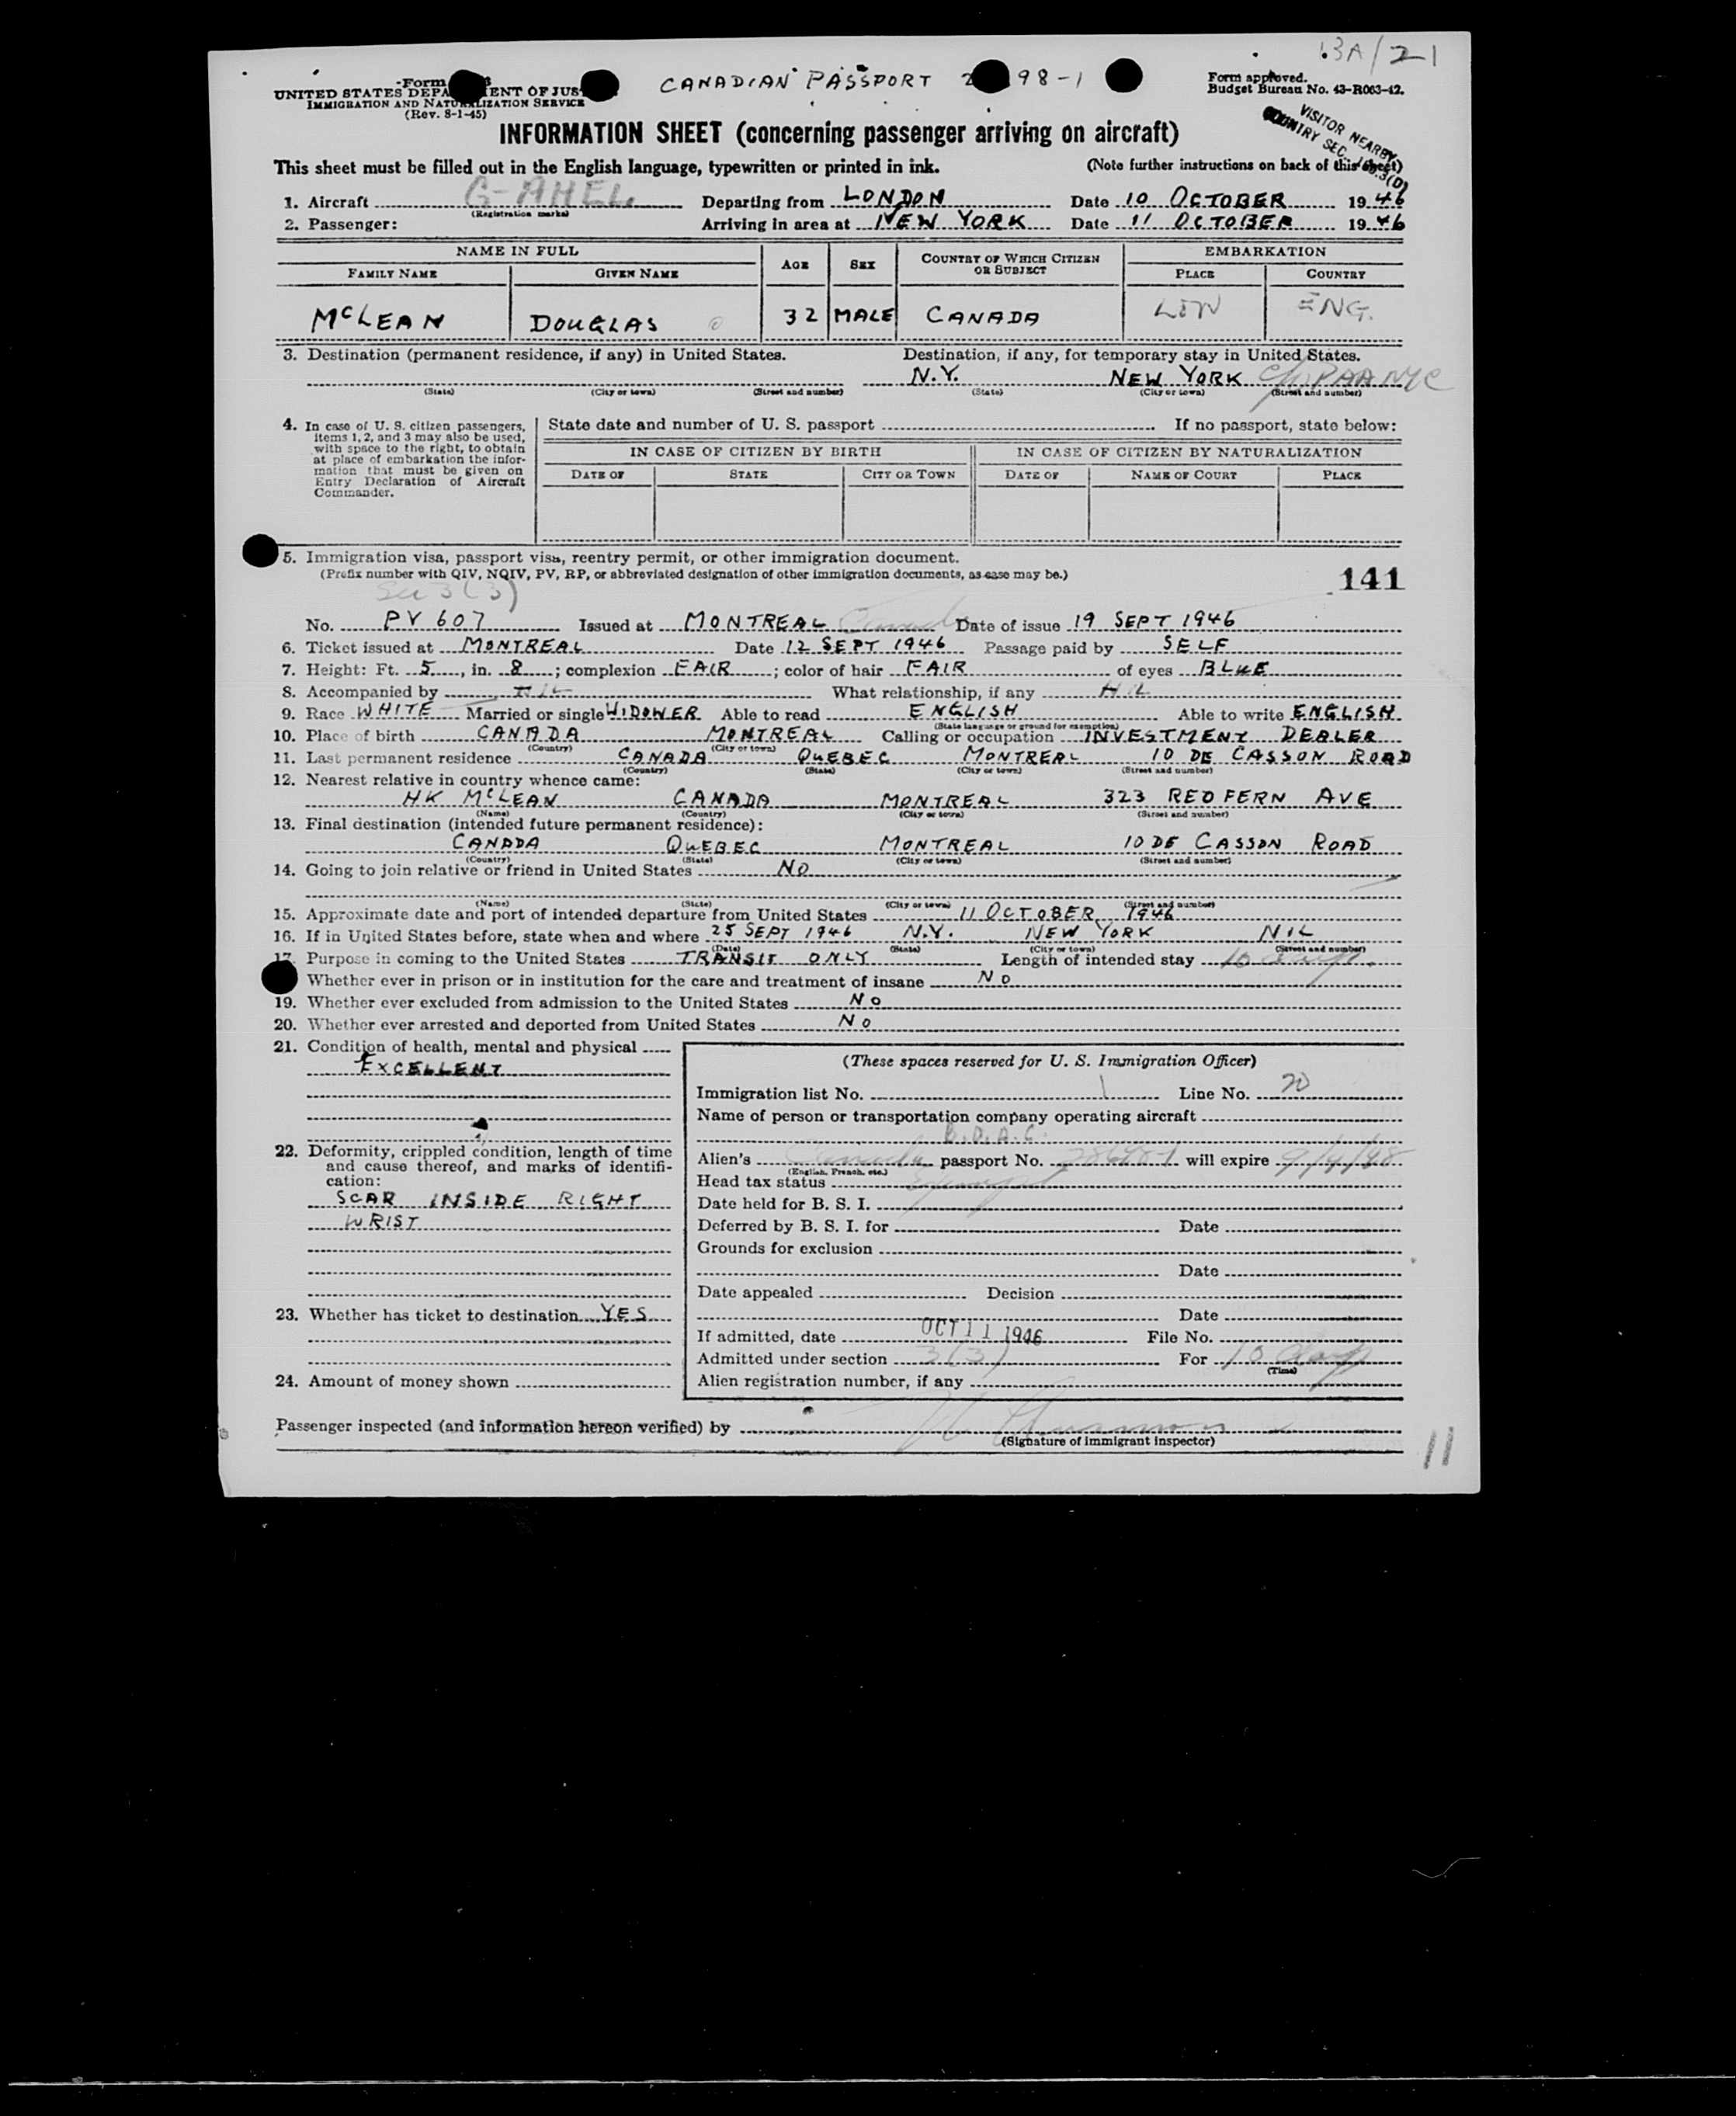 13A/21
Form
CANADIAN PASSPORT 2 98-1
Form approved.
Budget Bureau No. 43-R063-42.
UNITED STATES DEPA ENT OF JUS
IMMIGRATION AND NATURALIZATION SERVICE
(Rev. 8-1-45)
VISITOR NEARBY
COUNTRY SEC.
INFORMATION SHEET (concerning passenger arriving on aircraft)
This sheet must be filled out in the English language, typewritten or printed in ink. (Note further instructions on back of this sheet)
1. Aircraft G-AHEL Departing from LONDON Date 10 OCTOBER 1946
(Registration marks)
2. Passenger: Arriving in area at NEW YORK Date 11 OCTOBER 1946
NAME IN FULL AGE SEX COUNTRY OF WHICH CITIZEN OR SUBJECT EMBARKATION
FAMILY NAME GIVEN NAME PLACE COUNTRY
McLEAN DOUGLAS 32 MALE CANADA LON ENG.
3. Destination (permanent residence, if any) in United States. Destination, if any, for temporary stay in United States.
N.Y. NEW YORK c/o PAA NYC
(State) (City or town) (Street and number) (State) (City or town) (Street and number)
4. In case of U. S. citizen passengers, items 1, 2, and 3 may also be used, with space to the right, to obtain at place of embarkation the information that must be given on Entry Declaration of Aircraft Commander.
State date and number of U. S. passport If no passport, state below:
IN CASE OF CITIZEN BY BIRTH IN CASE OF CITIZEN BY NATURALIZATION
DATE OF STATE CITY OR TOWN DATE OF NAME OF COURT PLACE
5. Immigration visa, passport visa, reentry permit, or other immigration document.
(Prefix number with QIV, NQIV, PV, RP, or abbreviated designation of other immigration documents, as case may be.)
141
Sec 3(3)
No. PV 607 Issued at MONTREAL Canada Date of issue 19 SEPT 1946
6. Ticket issued at MONTREAL Date 12 SEPT 1946 Passage paid by SELF
7. Height: Ft. 5, in. 8; complexion FAIR; color of hair FAIR of eyes BLUE
8. Accompanied by NIL What relationship, if any NIL
9. Race WHITE Married or single WIDOWER Able to read ENGLISH Able to write ENGLISH
(State language or ground for exemption)
10. Place of birth CANADA MONTREAL Calling or occupation INVESTMENT DEALER
(Country) (City or town)
11. Last permanent residence CANADA QUEBEC MONTREAL 10 DE CASSON ROAD
(Country) (State) (City or town) (Street and number)
12. Nearest relative in country whence came:
HK McLEAN CANADA MONTREAL 323 REDFERN AVE
(Name) (Country) (City or town) (Street and number)
13. Final destination (intended future permanent residence):
CANADA QUEBEC MONTREAL 10 DE CASSON ROAD
(Country) (State) (City or town) (Street and number)
14. Going to join relative or friend in United States NO
(Name) (State) (City or town) (Street and number)
15. Approximate date and port of intended departure from United States 11 OCTOBER, 1946
16. If in United States before, state when and where 25 SEPT 1946 N.Y. NEW YORK NIL
(Date) (State) (City or town) (Street and number)
17. Purpose in coming to the United States TRANSIT ONLY Length of intended stay 10 days.
Whether ever in prison or in institution for the care and treatment of insane NO
19. Whether ever excluded from admission to the United States NO
20. Whether ever arrested and deported from United States NO
21. Condition of health, mental and physical
EXCELLENT
22. Deformity, crippled condition, length of time and cause thereof, and marks of identification:
SCAR INSIDE RIGHT
WRIST
23. Whether has ticket to destination YES
24. Amount of money shown
(These spaces reserved for U. S. Immigration Officer)
Immigration list No. 1 Line No. 20
Name of person or transportation company operating aircraft
B.O.A.C.
Alien's Canada passport No. 28698-1 will expire 9/4/48
(English, French, etc.)
Head tax status
Date held for B. S. I.
Deferred by B. S. I. for Date
Grounds for exclusion
Date
Date appealed Decision
Date
If admitted, date OCT 11 1946 File No.
Admitted under section 3(3) For 10 days
(Time)
Alien registration number, if any
Passenger inspected (and information hereon verified) by
(Signature of immigrant inspector)
11